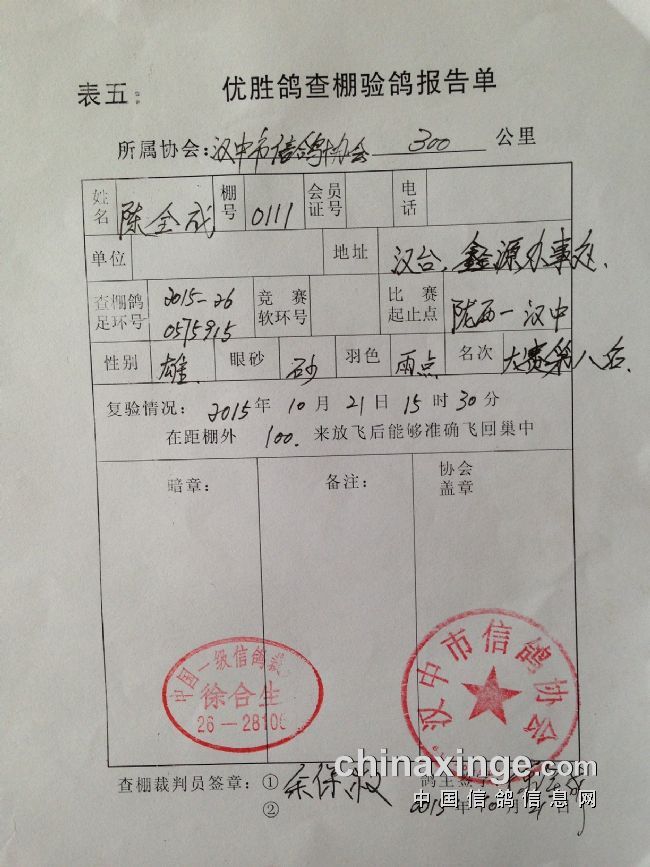 表五: 优胜鸽查棚验鸽报告单
所属协会:汉中市信鸽协会 300 公里
姓名 陈全成 棚号 0111 会员证号 电话
单位 地址 汉台.鑫源办事处.
查棚鸽足环号 2015-26 0575915 竞赛软环号 比赛起止点 陇西-汉中
性别 雄. 眼砂 砂 羽色 雨点 名次 大赛第八名.
复验情况: 2015年 10月 21日 15时 30分
在距棚外 100. 来放飞后能够准确飞回巢中
暗章: 备注: 协会盖章
中国一级信鸽裁
徐合生
26—28106
汉中市信鸽协会
chinaxinge.com
查棚裁判员签章: ① 余保 鸽主签
中国信鸽信息网
② 2015年10月21日